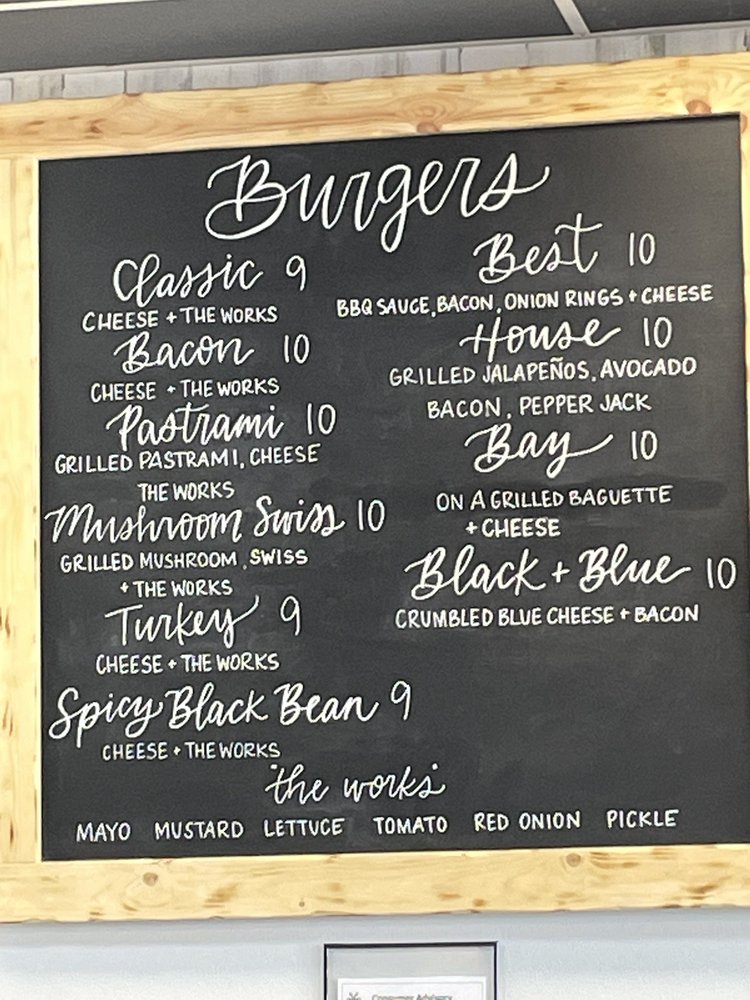 Burgers
Classic 9
CHEESE + THE WORKS
Bacon 10
CHEESE + THE WORKS
Pastrami 10
GRILLED PASTRAMI, CHEESE
THE WORKS
Mushroom Swiss 10
GRILLED MUSHROOM, SWISS
+ THE WORKS
Turkey 9
CHEESE + THE WORKS
Spicy Black Bean 9
CHEESE + THE WORKS
Best 10
BBQ SAUCE, BACON, ONION RINGS + CHEESE
House 10
GRILLED JALAPEÑOS, AVOCADO
BACON, PEPPER JACK
Bay 10
ON A GRILLED BAGUETTE
+ CHEESE
Black + Blue 10
CRUMBLED BLUE CHEESE + BACON
the works
MAYO MUSTARD LETTUCE TOMATO RED ONION PICKLE
Consumer Advisory